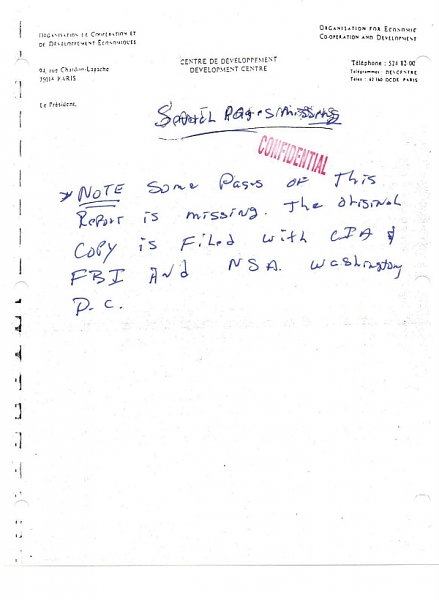 ORGANISATION DE COOPÉRATION ET
DE DÉVELOPPEMENT ÉCONOMIQUES
ORGANISATION FOR ECONOMIC
CO-OPERATION AND DEVELOPMENT
CENTRE DE DÉVELOPPEMENT
DEVELOPMENT CENTRE
94, rue Chardon-Lagache
75016 PARIS
Téléphone : 524 82-00
Télégrammes : DEVCENTRE
Télex : 62 160 OCDE PARIS
Le Président,
Pages missing
CONFIDENTIAL
* NOTE Some Pages OF This
Report is missing. The Original
Copy is Filed with CIA &
FBI And NSA. Washington
D.C.